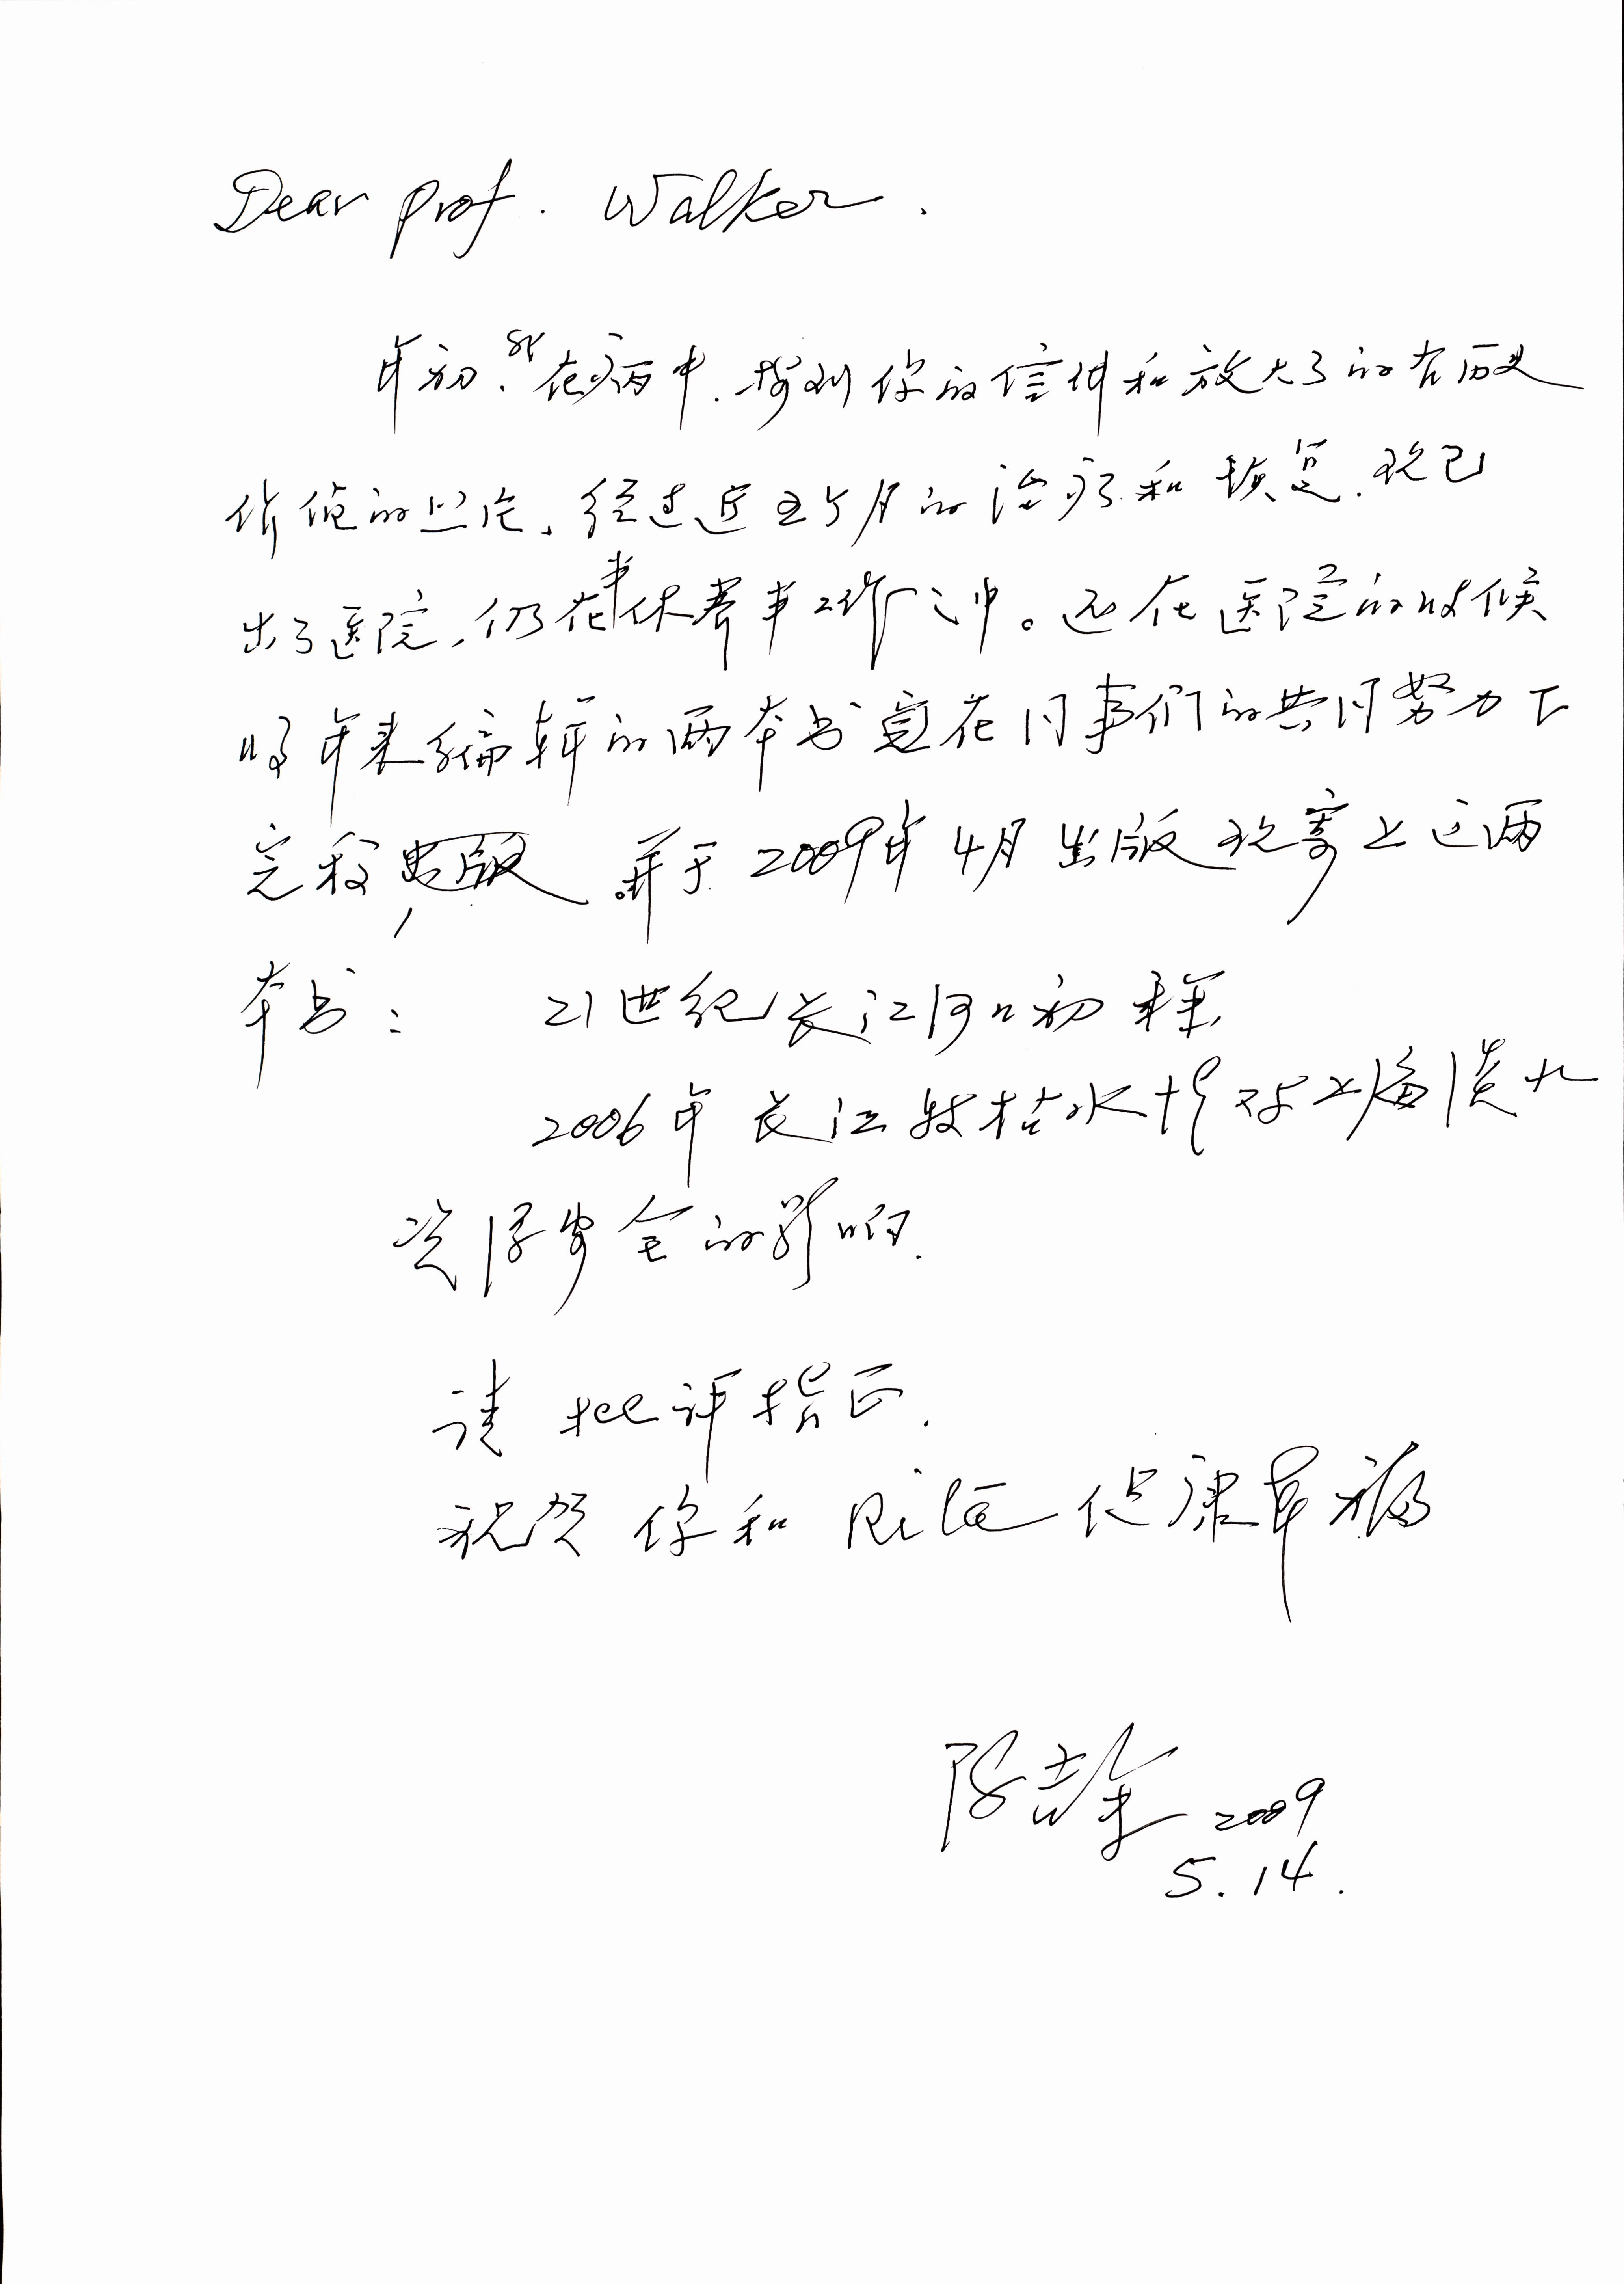 Dear Prof. Walker.
年初、我在病中. 接到你的信件和放大了的有历史
价值的照片, 经过近五个月的治疗和恢复. 现已
出了医院, 仍在半休养半工作之中。还在医院的时候
年来编辑的两本书 在同事们的共同努力下
完稿, 并于2009年4月出版 现寄上这两
本书:  21世纪长江河口初探,
2006年长江特枯水情对上海淡水
资源安全的影响.
请批评指正.
祝贺 你和 Rita 健康幸福
陈吉余 2009
5.14.